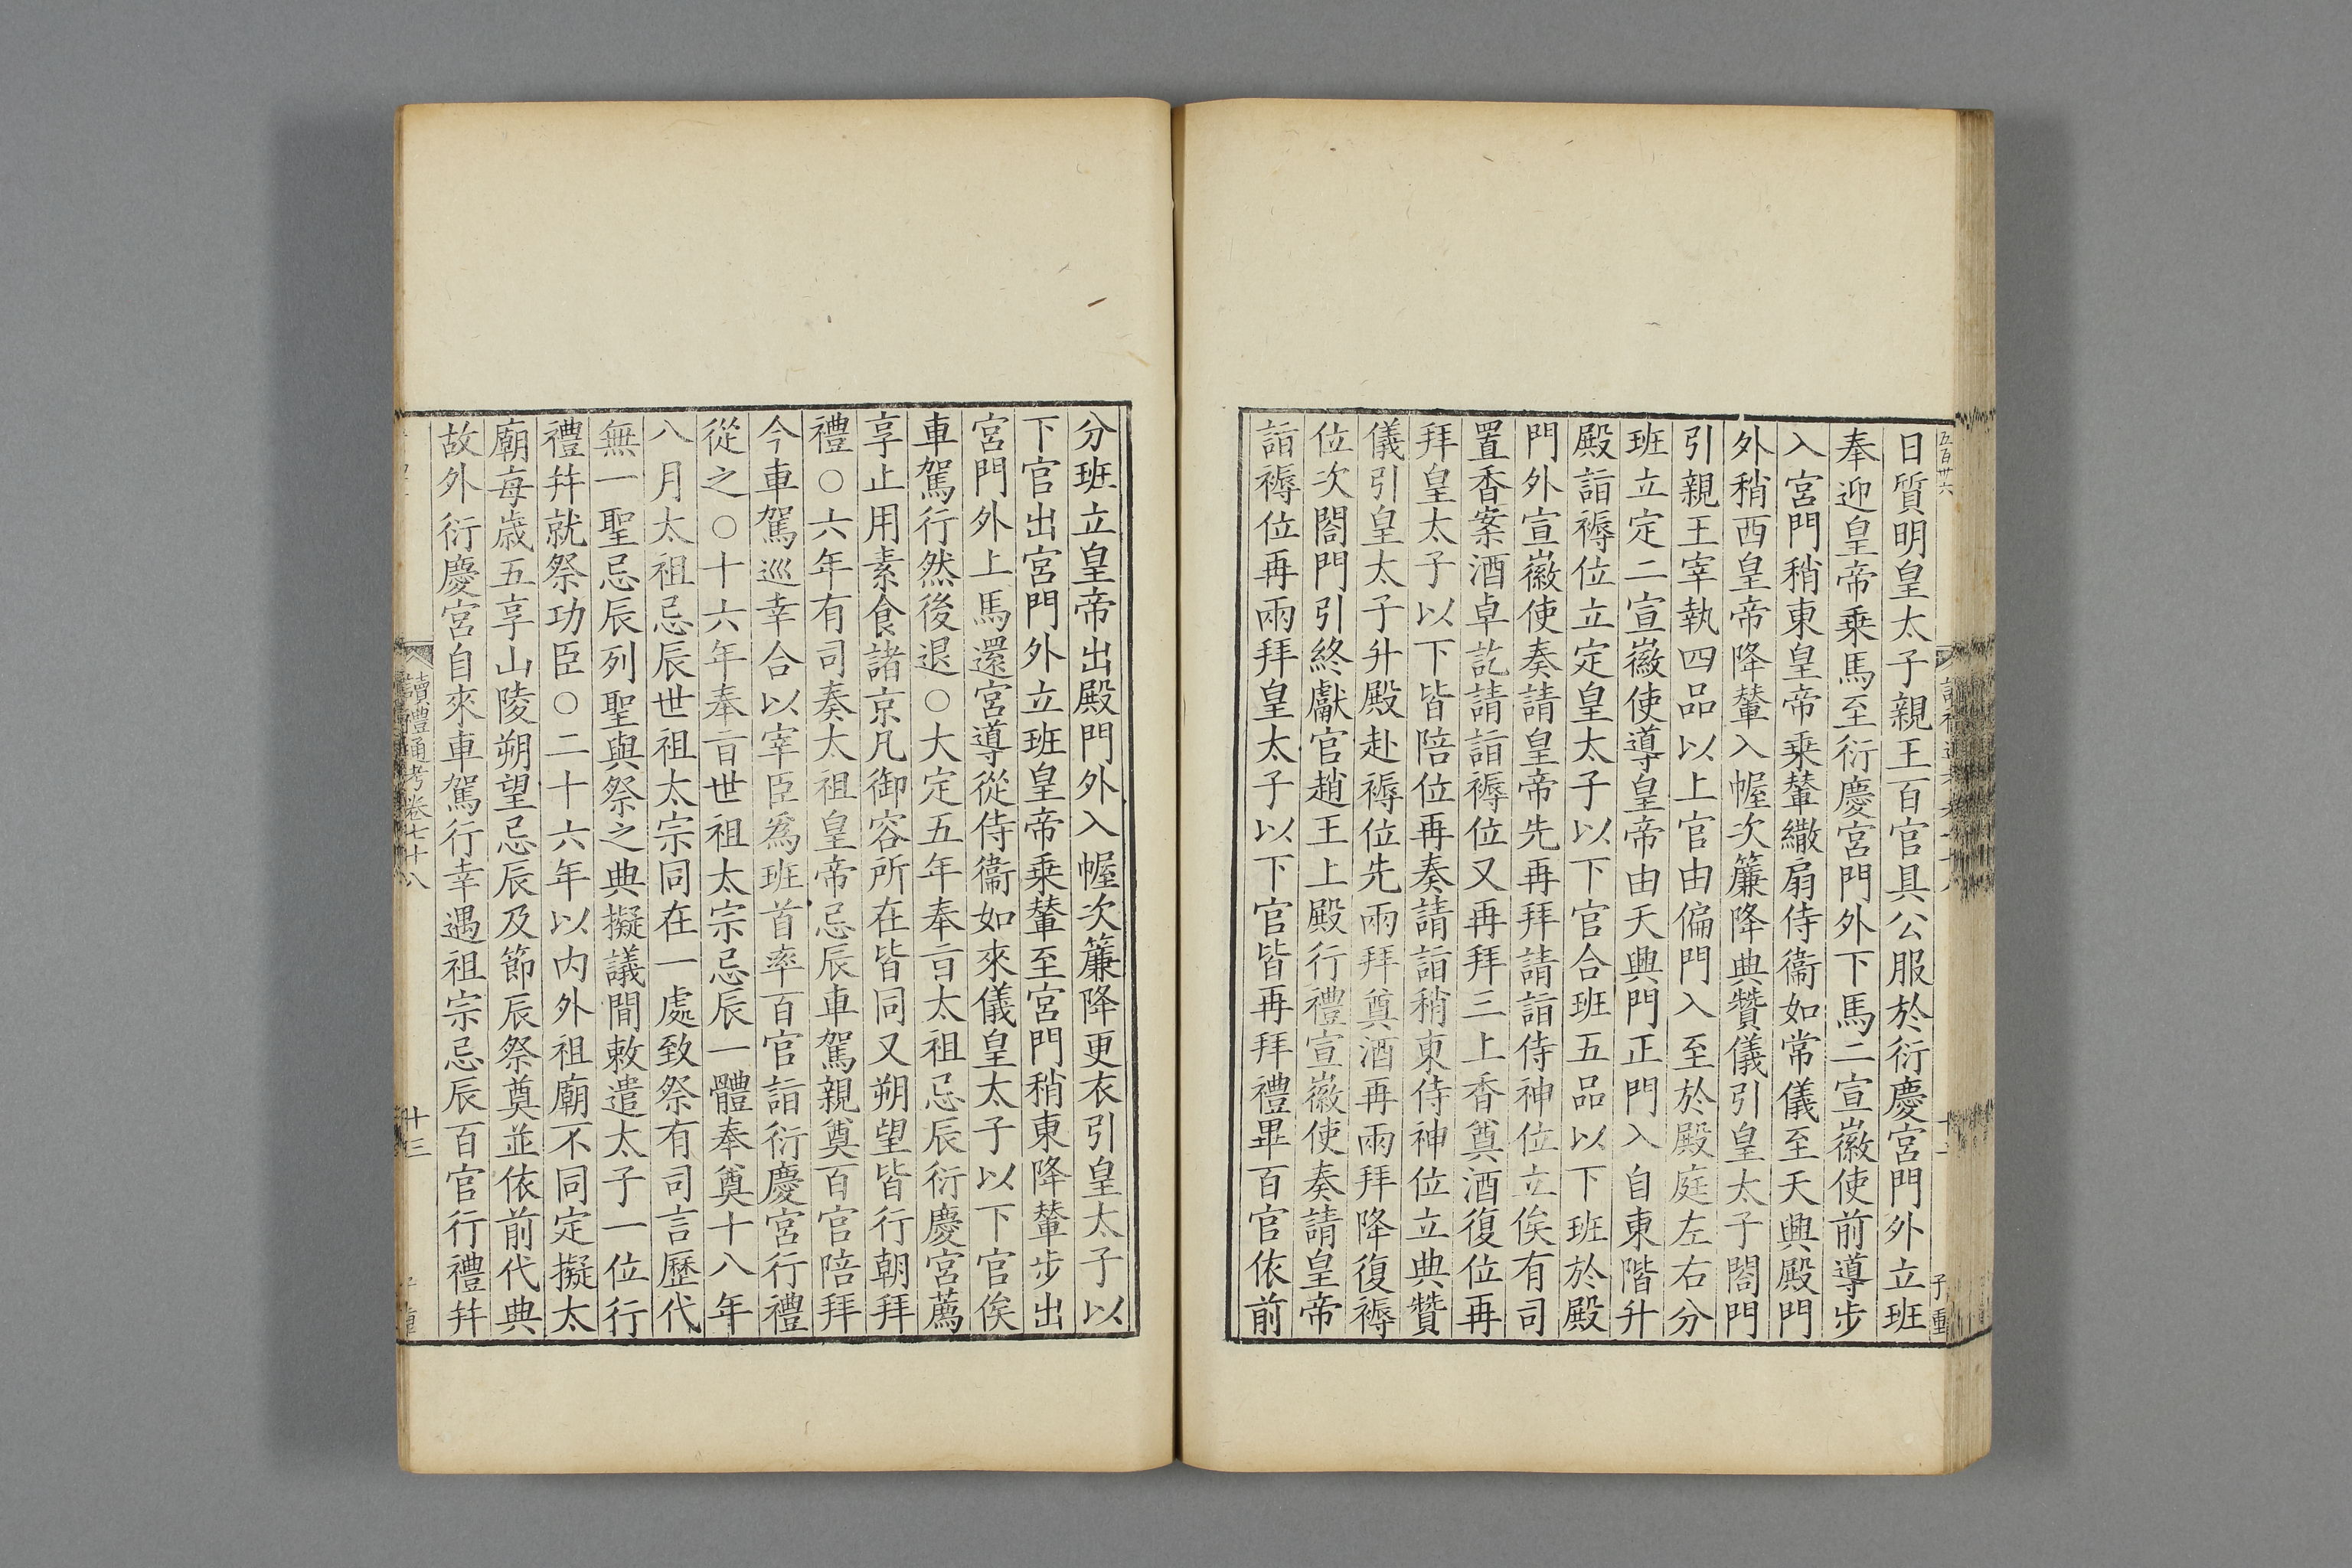 五百卅六
日質明皇太子親王百官具公服於衍慶宮門外立班
奉迎皇帝乗馬至衍慶宮門外下馬二宣徽使前導步
入宮門稍東皇帝乗輦繖扇侍衞如常儀至天興殿門
外稍西皇帝降輦入幄次簾降典贊儀引皇太子閤門
引親王宰執四品以上官由偏門入至於殿庭左右分
班立定二宣徽使導皇帝由天興門正門入自東階升
殿詣褥位立定皇太子以下官合班五品以下班於殿
門外宣徽使奏請皇帝先再拜請詣侍神位立俟有司
置香案酒卓訖請詣褥位又再拜三上香奠酒復位再
拜皇太子以下皆陪位再奏請詣稍東侍神位立典贊
儀引皇太子升殿赴褥位先兩拜奠酒再兩拜降復褥
位次閤門引終獻官趙王上殿行禮宣徽使奏請皇帝
詣褥位再兩拜皇太子以下官皆再拜禮畢百官依前
分班立皇帝出殿門外入幄次簾降更衣引皇太子以
下官出宮門外立班皇帝乗輦至宮門稍東降輦步出
宮門外上馬還宮導從侍衞如來儀皇太子以下官俟
車駕行然後退○大定五年奉㫖太祖忌辰衍慶宮薦
享止用素食諸京凡御容所在皆同又朔望皆行朝拜
禮○六年有司奏太祖皇帝忌辰車駕親奠百官陪拜
今車駕巡幸合以宰臣爲班首率百官詣衍慶宮行禮
從之○十六年奉㫖世祖太宗忌辰一體奉奠十八年
八月太祖忌辰世祖太宗同在一處致祭有司言歷代
無一聖忌辰列聖與祭之典擬議間敕遣太子一位行
禮并就祭功臣○二十六年以内外祖廟不同定擬太
廟每歲五享山陵朔望忌辰及節辰祭奠並依前代典
故外衍慶宮自來車駕行幸遇祖宗忌辰百官行禮并
讀禮通考卷七十八
十三